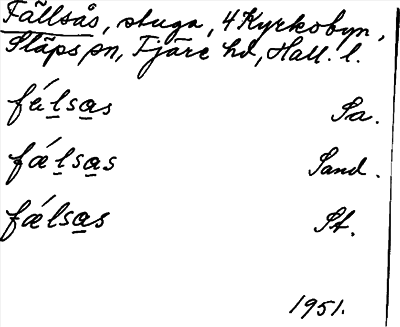 Fällsås, stuga, 4 Kyrkobyn,
Släps sn, Fjäre hd, Hall. l.
fé̱lsa̱s Sa.
fǽḻsa̱s Sand.
fǽlsa̱s St.
1951.